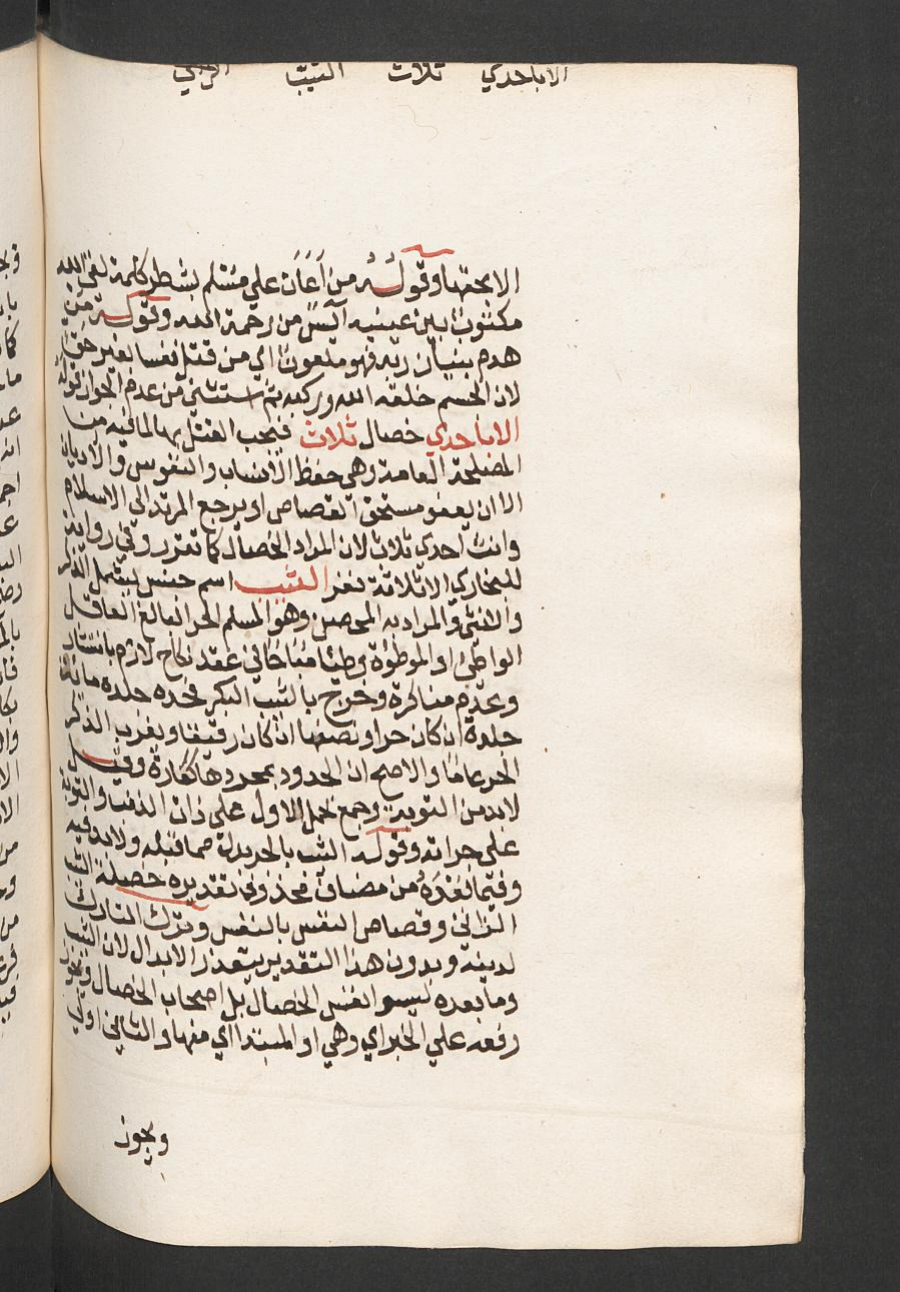 الاباحدي ثلاث الثيب الزاني
الابحقها وقوله من أعان علي مسلم بشطر كلمة لقي الله
مكتوبا بين عينيه آيس من رحمة الله وقوله من
هدم بنيان ربه فهو ملعون اي من قتل نفسا بغير حق
لان الجسم خلقه الله وركبه ثم استثني من عدم الجواز قوله
الاباحدي خصال ثلاث فيجب القتل بها لما فيه من
المصلحة العامة وهي حفظ الأنساب والنفوس والاديان
الا ان يعفو مستحق القصاص او يرجع المرتد الي الاسلام
وانث احدي ثلاث لان المراد الخصال كما تقرر وفي رواية
للبخاري الا ثلاثة نفر الثيب اسم جنس يشمل الذكر
والانثي والمراد به المحصن وهو المسلم الحر البالغ العاقل
الواطئ او الموطوءة وطئا مباحا في عقد نكاح لازم بانتشار
وعدم مناكرة وخرج بالثيب البكر فحده جلده مائة
جلدة ان كان حرا ونصفها ان كان رقيقا ويغرب الذكر
الحر عاما والاصح ان الحدود بمجردها كفارة وقيل
لابد من التوبة وجمع بحمل الاول علي ذات الذنب والتوبة
علي جراته وقوله الثيب بالجر بدلة مما قبله ولابد فيه
وفيما بعده من مضاف محذوف تقديره خصيلة الثيب
الزاني وقصاص النفس بالنفس وترك التارك
لدينه وبدون هذا التقدير يتعذر الابدال لان الثيب
وما بعده ليسوا نفس الخصال بل اصحاب الخصال ويجوز
رفعه علي الخبر اي وهي او المبتدا اي منها والثاني اولي
ويجوز